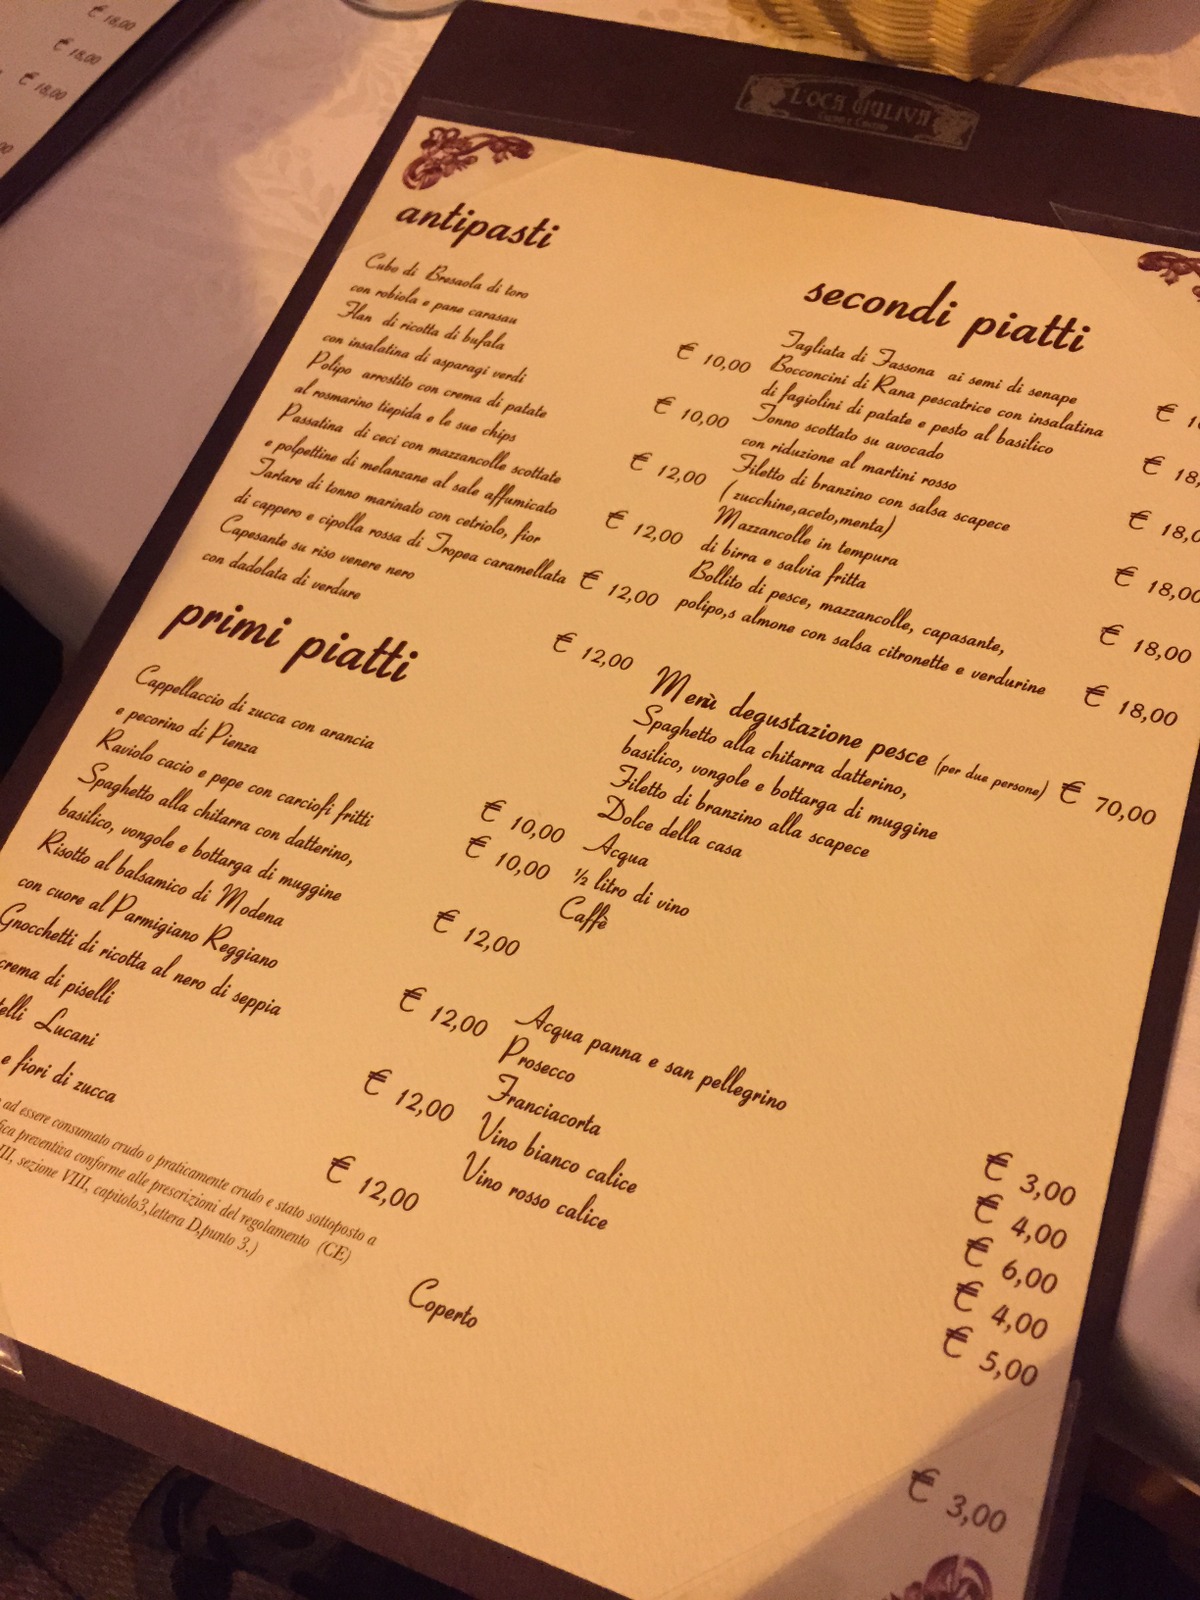 € 18,00
€ 18,00
€ 18,00
L'OCA GIULIVA
antipasti
Cubo di Bresaola di toro
con robiola e pane carasau
€ 10,00
Flan di ricotta di bufala
con insalatina di asparagi verdi
€ 10,00
Polipo arrostito con crema di patate
al rosmarino tiepida e le sue chips
€ 12,00
Passatina di ceci con mazzancolle scottate
e polpettine di melanzane al sale affumicato
€ 12,00
Tartare di tonno marinato con cetriolo, fior
di cappero e cipolla rossa di Tropea caramellata
€ 12,00
Capesante su riso venere nero
con dadolata di verdure
€ 12,00
primi piatti
Cappellaccio di zucca con arancia
e pecorino di Pienza
€ 10,00
Raviolo cacio e pepe con carciofi fritti
€ 10,00
Spaghetto alla chitarra con datterino,
basilico, vongole e bottarga di muggine
€ 12,00
Risotto al balsamico di Modena
con cuore al Parmigiano Reggiano
€ 12,00
Gnocchetti di ricotta al nero di seppia
crema di piselli
€ 12,00
Lucani
e fiori di zucca
€ 12,00
ad essere consumato crudo o praticamente crudo e stato sottoposto a
preventiva conforme alle prescrizioni del regolamento (CE)
sezione VIII, capitolo3,lettera D,punto 3.)
secondi piatti
Tagliata di Fassona ai semi di senape
€
Bocconcini di Rana pescatrice con insalatina
di fagiolini di patate e pesto al basilico
€ 18,
Tonno scottato su avocado
con riduzione al martini rosso
€ 18,0
Filetto di branzino con salsa scapece
( zucchine,aceto,menta)
€ 18,00
Mazzancolle in tempura
di birra e salvia fritta
€ 18,00
Bollito di pesce, mazzancolle, capasante,
polipo,s almone con salsa citronette e verdurine
€ 18,00
Menù degustazione pesce (per due persone) € 70,00
Spaghetto alla chitarra datterino,
basilico, vongole e bottarga di muggine
Filetto di branzino alla scapece
Dolce della casa
Acqua
½ litro di vino
Caffè
Acqua panna e san pellegrino
€ 3,00
Prosecco
€ 4,00
Franciacorta
€ 6,00
Vino bianco calice
€ 4,00
Vino rosso calice
€ 5,00
Coperto
€ 3,00